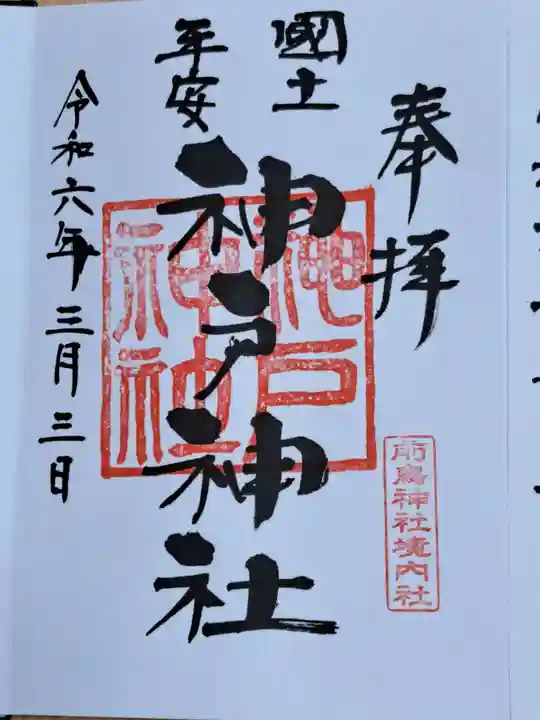 奉拝
國土
平安
神戸神社
神戸
神社
前鳥神社境内社
令和六年三月三日